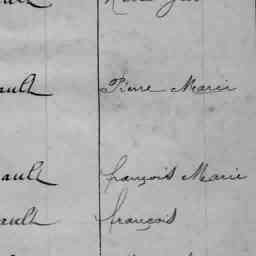 ault Pierre Marie
ault François Marie
ault François